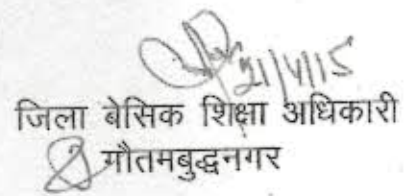 21/4/15
जिला बेसिक शिक्षा अधिकारी
गौतमबुद्धनगर